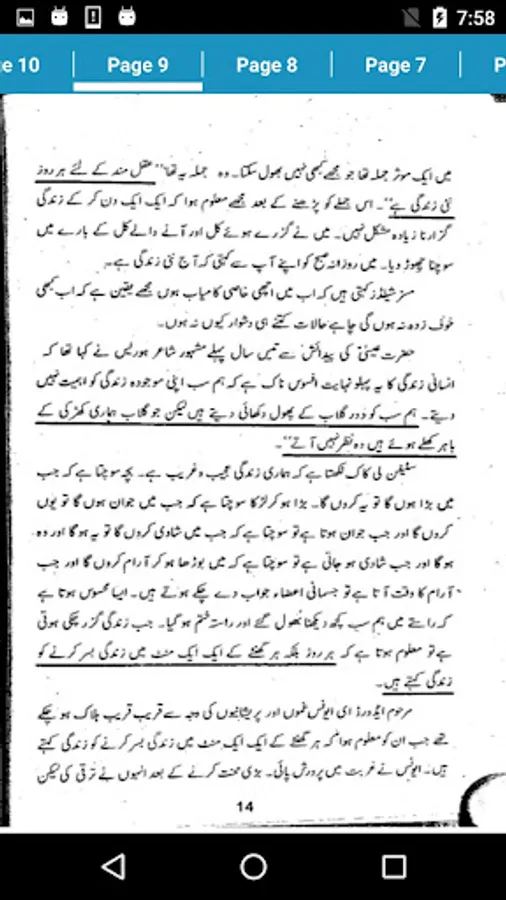 7:58
e 10
Page 9
Page 8
Page 7
P
میں ایک موثر جملہ تھا جو مجھے کبھی نہیں بھول سکتا۔ وہ جملہ یہ تھا ”عقل مند کے لئے ہر روز
نئی زندگی ہے“۔ اس جملے کو پڑھنے کے بعد مجھے معلوم ہوا کہ ایک ایک دن کر کے زندگی
گزارنا زیادہ مشکل نہیں۔ میں نے گزرے ہوئے کل اور آنے والے کل کے بارے میں
سوچنا چھوڑ دیا۔ میں روزانہ صبح کو اپنے آپ سے کہتی کہ آج نئی زندگی ہے۔
مسز شیلڈز کہتی ہیں کہ اب میں اچھی خاصی کامیاب ہوں مجھے یقین ہے کہ اب کبھی
خوف زدہ نہ ہوں گی چاہے حالات کتنے ہی دشوار کیوں نہ ہوں۔
حضرت عیسیٰؑ کی پیدائش سے تیس سال پہلے مشہور شاعر ہوریس نے کہا تھا کہ
انسانی زندگی کا یہ پہلو نہایت افسوس ناک ہے کہ ہم سب اپنی موجودہ زندگی کو اہمیت نہیں
دیتے۔ ہم سب کو دور گلاب کے پھول دکھائی دیتے ہیں لیکن جو گلاب ہماری کھڑکی کے
باہر کھلے ہوئے ہیں وہ نظر نہیں آتے“۔
سٹیفن لی کاک لکھتا ہے کہ ہماری زندگی عجیب و غریب ہے۔ بچہ سوچتا ہے کہ جب
میں بڑا ہوں گا تو یہ کروں گا۔ بڑا ہو کر لڑکا سوچتا ہے کہ جب میں جوان ہوں گا تو یوں
کروں گا اور جب جوان ہوتا ہے تو سوچتا ہے کہ جب میں شادی کروں گا تو یہ ہو گا اور وہ
ہو گا اور جب شادی ہو جاتی ہے تو سوچتا ہے کہ میں بوڑھا ہو کر آرام کروں گا اور جب
آرام کا وقت آتا ہے تو جسمانی اعضاء جواب دے چکے ہوتے ہیں۔ ایسا محسوس ہوتا ہے
کہ راستے میں ہم سب کچھ دیکھنا بھول گئے اور راستہ ختم ہو گیا۔ جب زندگی گزر چکی ہوتی
ہے تو معلوم ہوتا ہے کہ ہر روز بلکہ ہر گھنٹے کے ایک ایک منٹ میں زندگی بسر کرنے کو
زندگی کہتے ہیں۔
مرحوم ایڈورڈ ای ایونس غموں اور پریشانیوں کی وجہ سے قریب قریب ہلاک ہو چکے
تھے جب ان کو معلوم ہوا کہ ہر گھنٹے کے ایک ایک منٹ میں زندگی بسر کرنے کو زندگی کہتے
ہیں۔ ایونس نے غربت میں پرورش پائی۔ بڑی محنت کرنے کے بعد انہوں نے ترقی کی لیکن
14